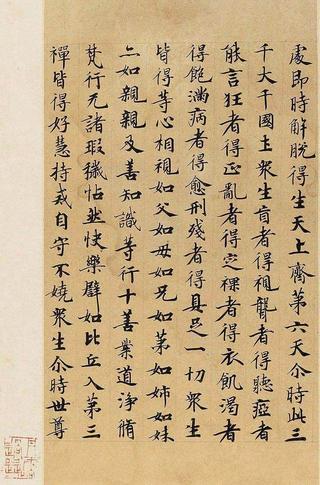 處即時解脫得生天上齊第六天尒時此三
千大千國土衆生盲者得視聾者得聽瘂者
能言狂者得正亂者得定裸者得衣飢渴者
得飽滿病者得愈刑殘者得具足一切衆生
皆得等心相視如父如母如兄如弟如姉如妹
亦如親親及善知識等行十善業道淨脩
梵行无諸瑕穢恬然快樂譬如比丘入第三
禪皆得好慧持戒自守不嬈衆生尒時世尊